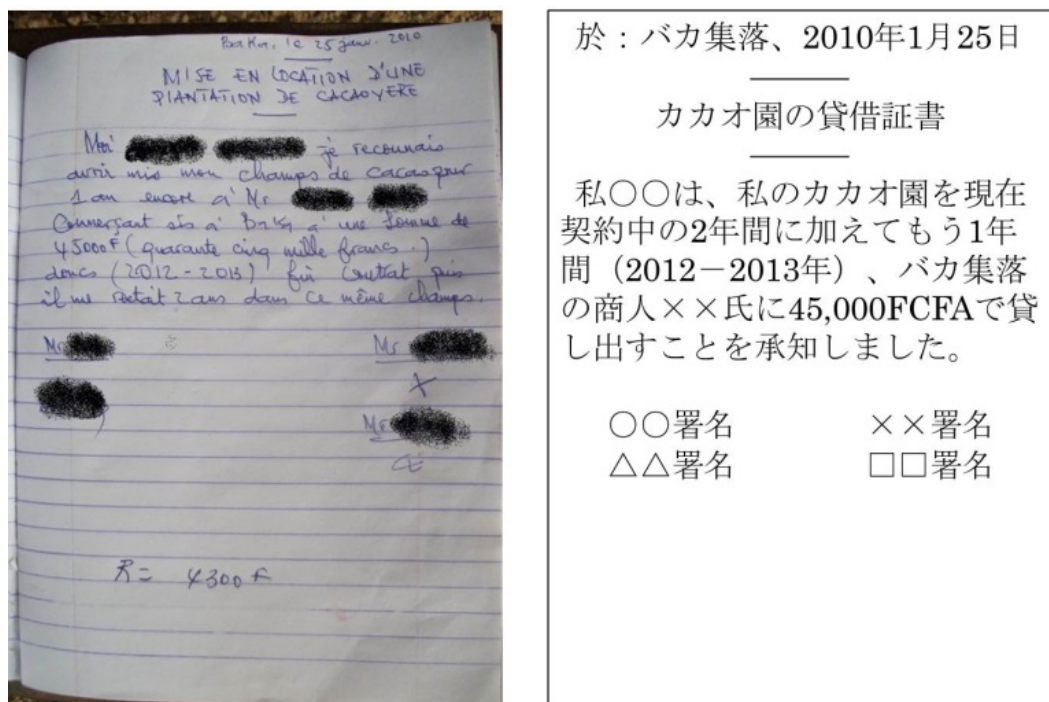 Baka, le 25 janv. 2010
MISE EN LOCATION D'UNE
PLANTATION DE CACAOYERE
Moi je reconnais
avoir mis mon champs de cacao pour
1 an encore à Mr
Commerçant sis à Baka à une somme de
45000F (quarante cinq mille francs.)
donc (2012-2013) fin contrat puis
il me restait 2 ans dans ce même champs.
Mr Mr
X
Mr
R= 4300 F
於：バカ集落、2010年1月25日
カカオ園の貸借証書
私○○は、私のカカオ園を現在
契約中の2年間に加えてもう1年
間（2012－2013年）、バカ集落
の商人××氏に45,000FCFAで貸
し出すことを承知しました。
○○署名 ××署名
△△署名 □□署名